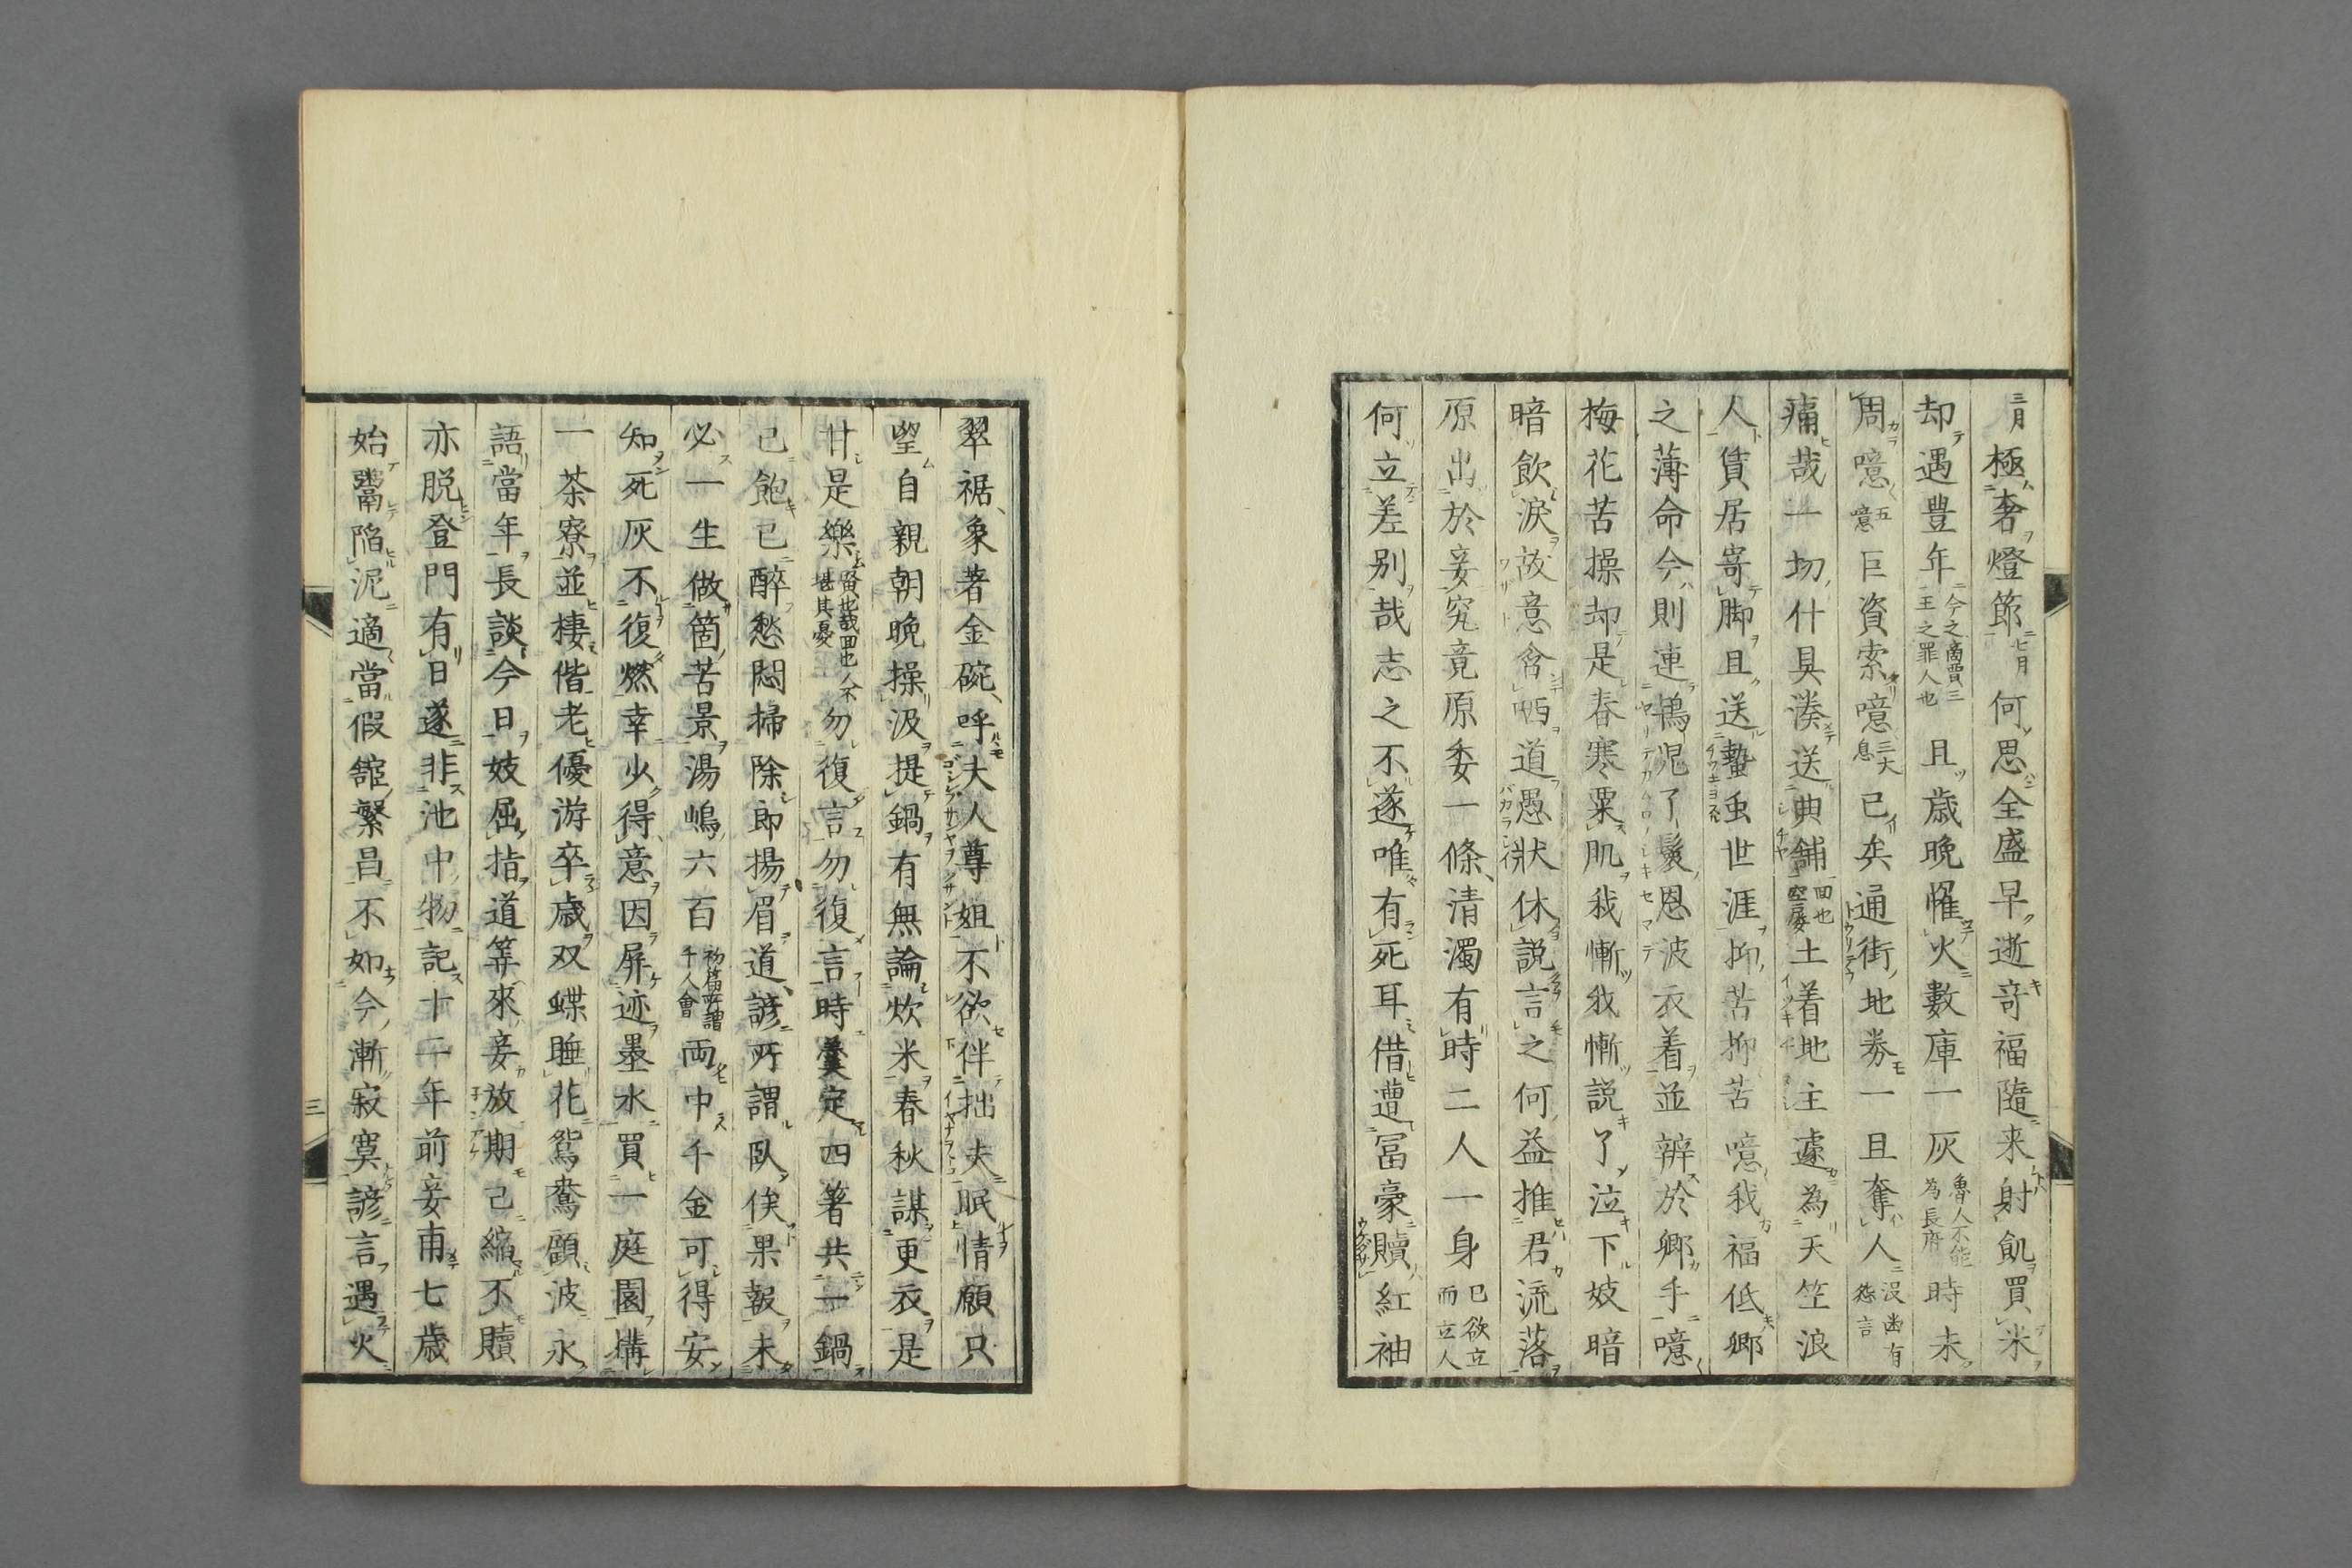 三月極奢燈節七月何思全盛早逝竒福隨来射飢買米
却遇豊年今之商賈三王之罪人也且歳晩罹火數庫一灰魯人不能為長府時未
周噫五噫巨資索噫三大息已矣通街地劵一且奪人没齒有怨言
痛哉一切什具湊送典舗一面也空屡土着地主遽為天竺浪
人賃居寄脚且送蟄虫世涯抑苦抑苦噫我福低郷
之薄命今則連鴇児了髮恩波衣着並辨於郷手噫
梅花苦操却是春寒粟肌我慚我慚説了泣下妓暗
暗飲淚故意含哂道愚状休説言之何益推君流落
原出於妾究竟原委一條清濁有時二人一身已欲立而立人
何立差别哉志之不遂唯有死耳借遭冨豪贖紅袖
翠裾象著金碗呼夫人尊姐不欲伴拙夫眠情願只
望自親朝晩操汲提鍋有無論炊米春秋謀更衣是
甘是樂賢也哉回也不堪其憂勿復言勿復言時羹定四箸共一鍋
已飽已醉愁悶掃除郎揚眉道諺所謂臥俟果報未
必一生做箇苦景湯嶋六百千人會両中千金可得安
知死灰不復燃幸少得意因屏迹墨水買一庭園構
一茶寮並棲偕老優游卒歳双蝶睡花鴛鴦顧波永
語當年長談今日妓屈指道等來妾放期已縮不贖
亦脱登門有日遂非池中物記十二年前妾甫七歳
始鬻陷泥適當假舘繁昌不如今漸寂寞諺言遇火
三